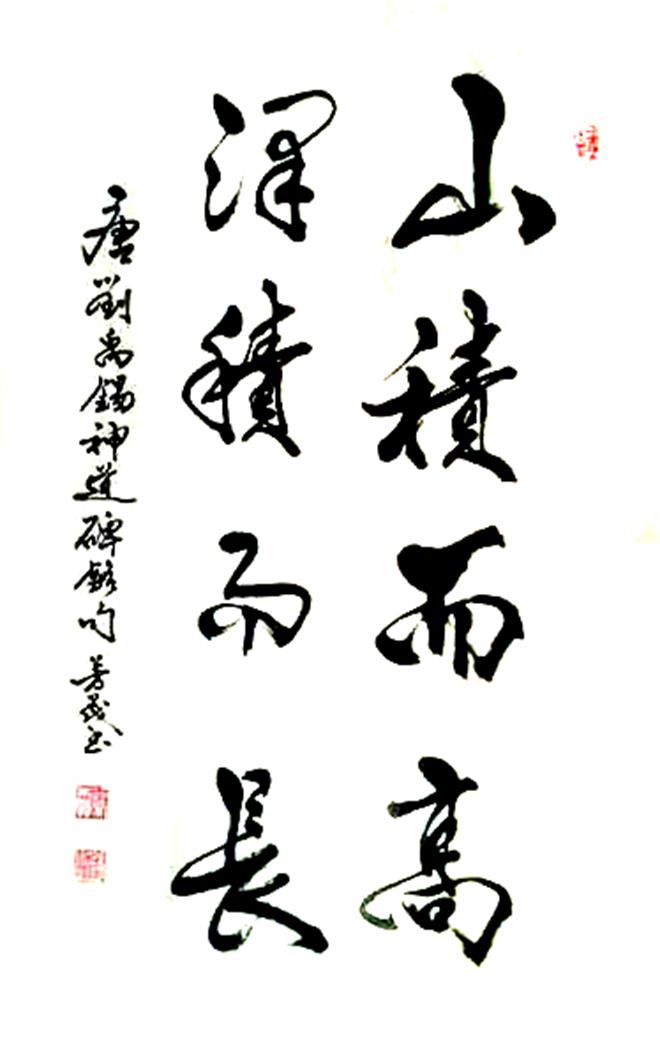 山積而高
澤積而長
唐劉禹錫神道碑銘句 芳茂书